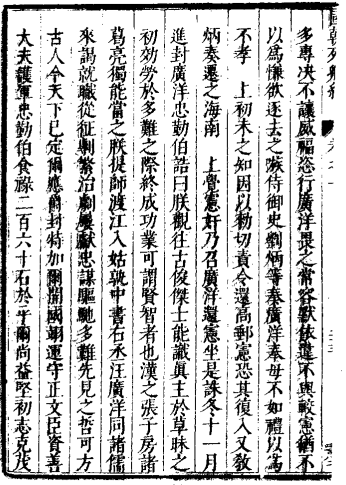 多專決不讓威福恣行廣洋畏之常容默依違不與較憲猶不
以爲慊欲逐去之嗾侍御史劉炳等奏廣洋奉母不如禮以爲
不孝　上初未之知因以勑切責令還高郵憲恐其復入又敎
炳奏遷之海南　上覺憲奸乃召廣洋還憲坐是誅冬十一月
進封廣洋忠勤伯誥曰朕觀往古俊傑士能識眞主於草昧之
初効勞於多難之際終成功業可謂賢智者也漢之張子房諸
葛亮獨能當之朕提師渡江入姑孰中書右丞汪廣洋同諸儒
來謁就職從征剸繁治劇屢獻忠謀驅馳多難先見之哲可方
古人今天下已定爾應爵封特加爾開國翊運守正文臣資善
大夫護軍忠勤伯食祿二百六十石於乎爾尚益堅初志克茂